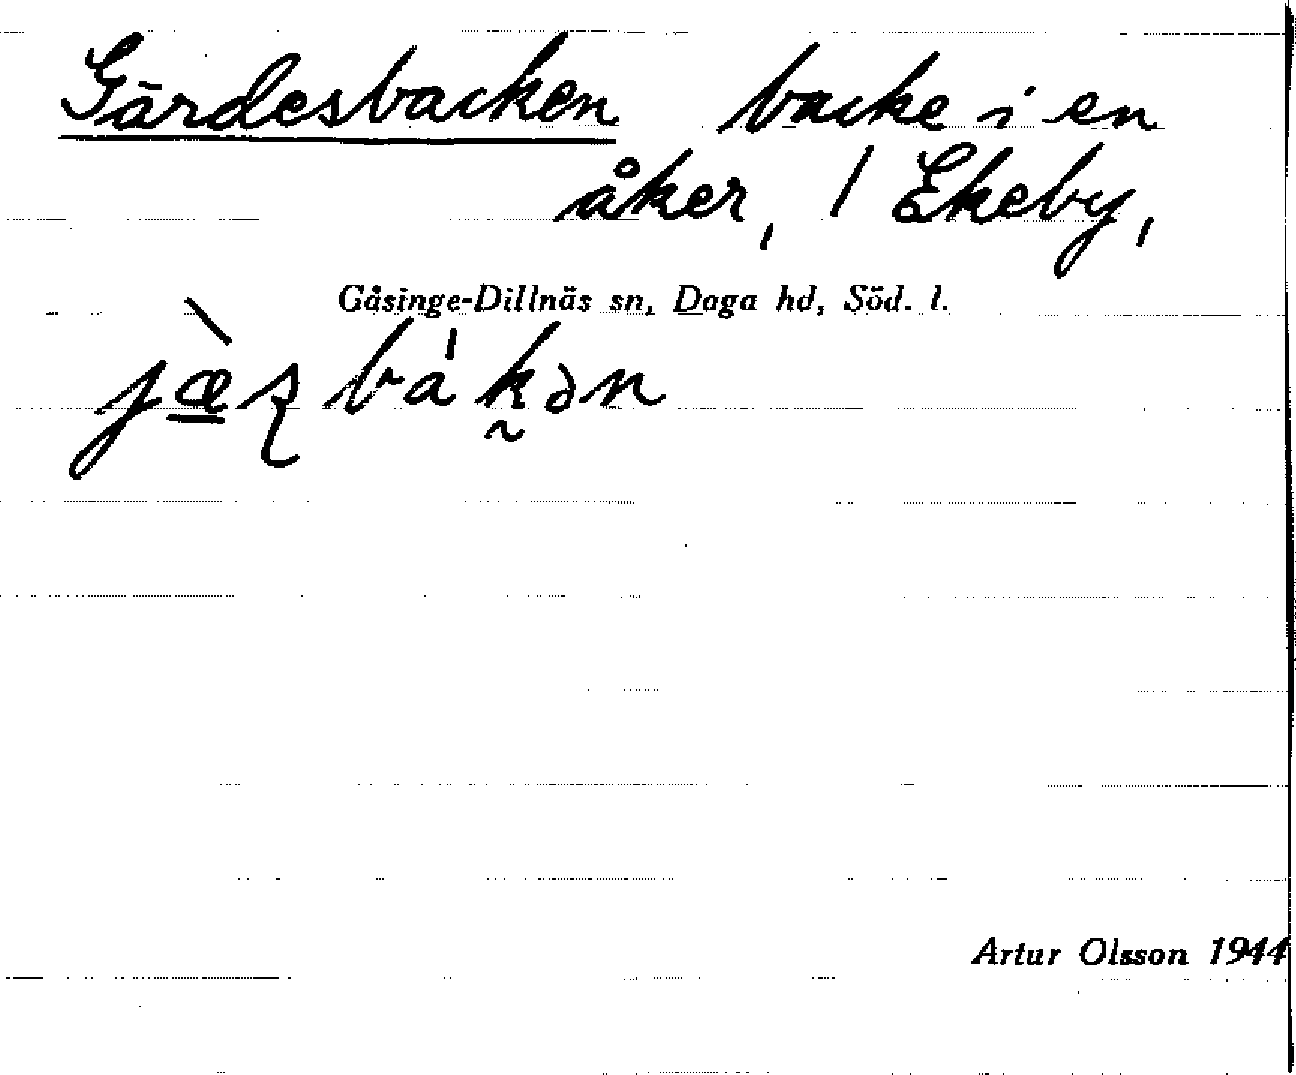 Gärdesbacken backe i en
åker, / Ekeby,
Gåsinge-Dillnäs sn, Daga hd, Söd. l.
jæ̠̀ʂbákən
Artur Olsson 1944